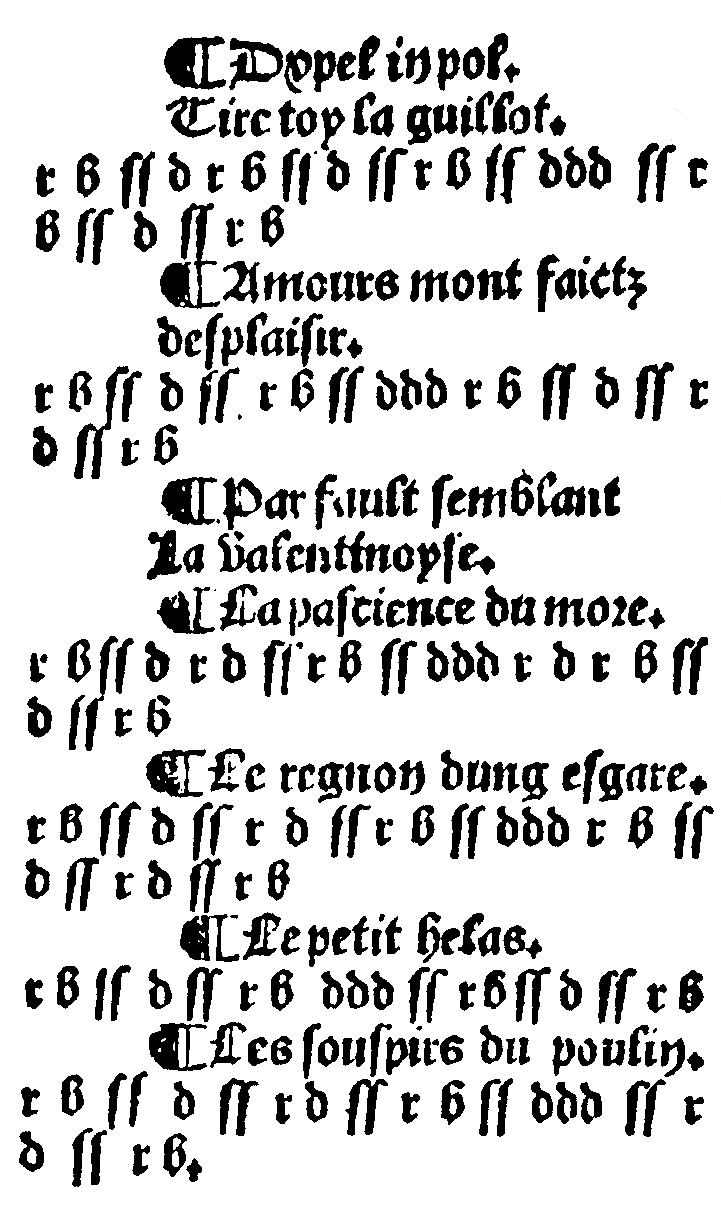 ¶ Dvpel in pol.
Tire toy la guillot.
r b ſſ d r b ſſ d ſſ r b ſſ ddd ſſ r
b ſſ d ſſ r b
¶ Amours mont faictz
deſplaiſir.
r b ſſ d ſſ r b ſſ ddd r b ſſ d ſſ r
d ſſ r b
¶ Par fault ſemblant
La valentinoyſe.
¶ La paſcience du more.
r b ſſ d r d ſſ r b ſſ ddd r d r b ſſ
d ſſ r b
¶ Le regnon dung eſgare.
r b ſſ d ſſ r d ſſ r b ſſ ddd r b ſſ
d ſſ r d ſſ r b
¶ Le petit helas.
r b ſſ d ſſ r b ddd ſſ r b ſſ d ſſ r b
¶ Les ſouſpirs du poulin.
r b ſſ d ſſ r d ſſ r b ſſ ddd ſſ r
d ſſ r b.